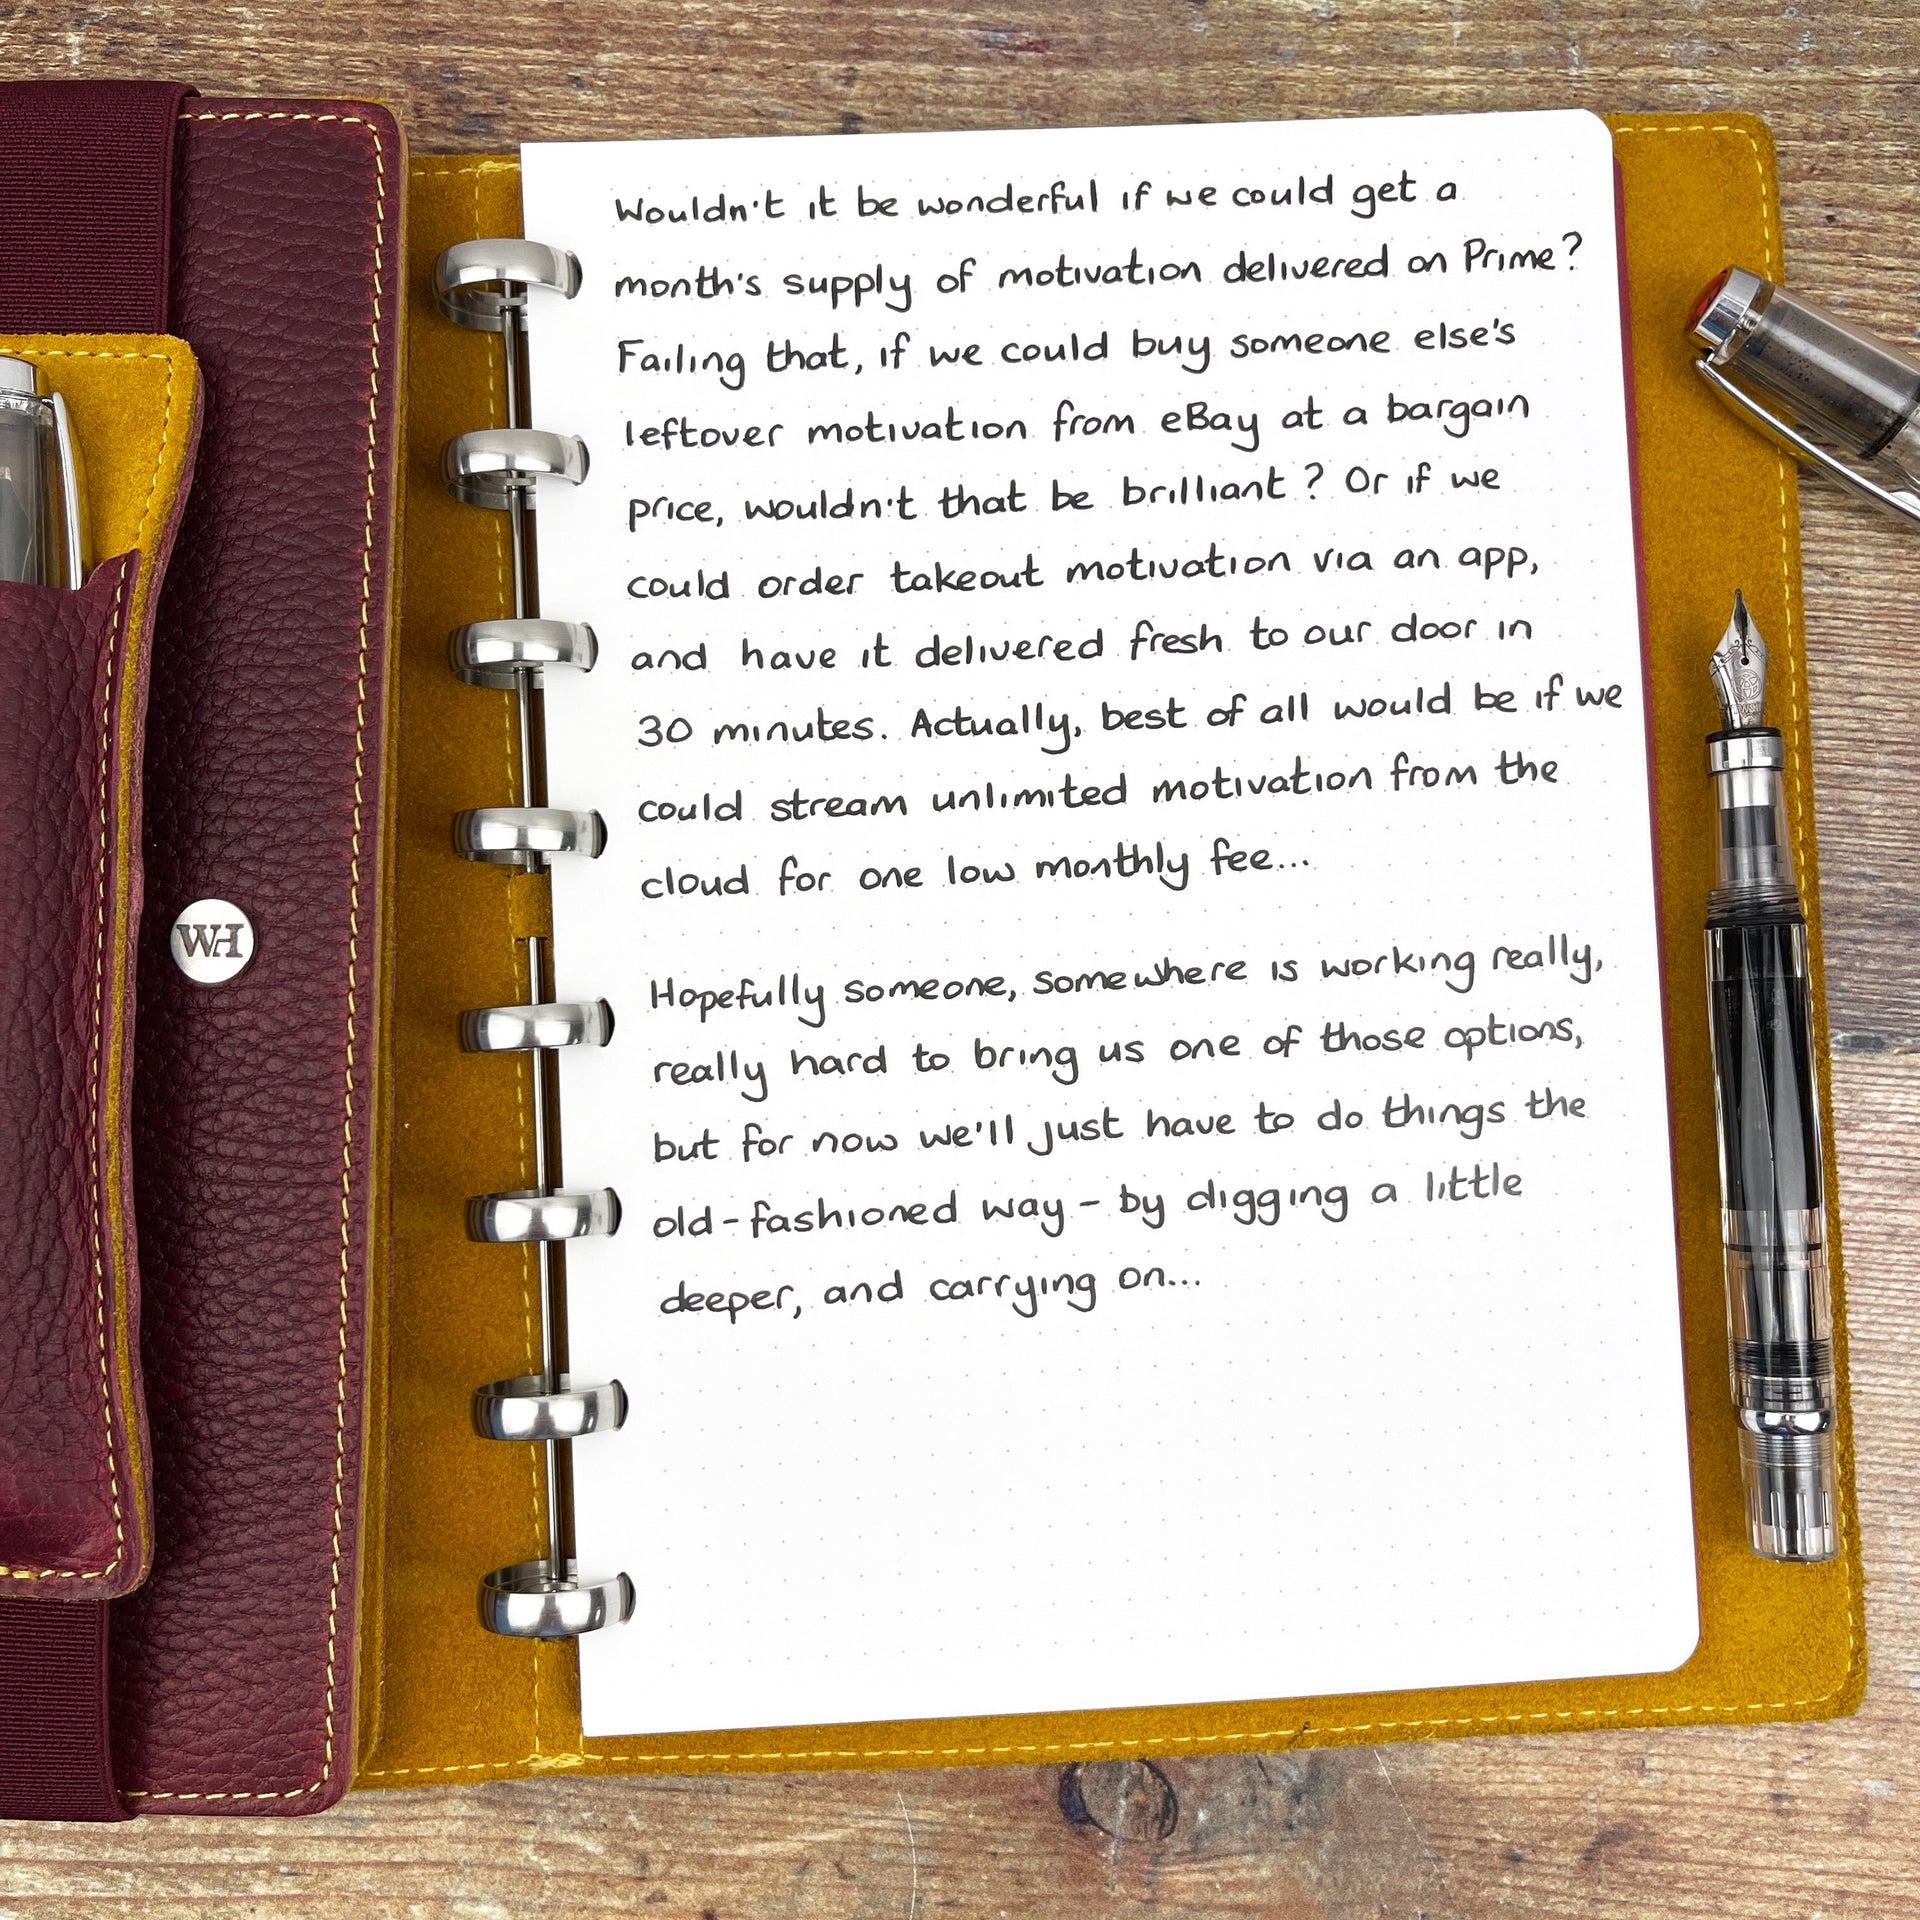 Wouldn't it be wonderful if we could get a
month's supply of motivation delivered on Prime?
Failing that, if we could buy someone else's
leftover motivation from eBay at a bargain
price, wouldn't that be brilliant? Or if we
could order takeout motivation via an app,
and have it delivered fresh to our door in
30 minutes. Actually, best of all would be if we
could stream unlimited motivation from the
cloud for one low monthly fee...
Hopefully someone, somewhere is working really,
really hard to bring us one of those options,
but for now we'll just have to do things the
old-fashioned way - by digging a little
deeper, and carrying on...
WH